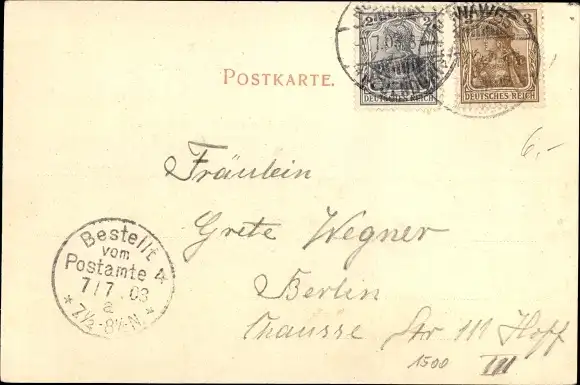 2 2
3
7.03
DEUTSCHES REICH
DEUTSCHES REICH
POSTKARTE.
6,-
Fräulein
Grete Wegner
Berlin
Chausse Str 111 Hoff
III
1500
Bestellt
vom
Postamte 4
7/7.03
a
* 7½-8½N. *